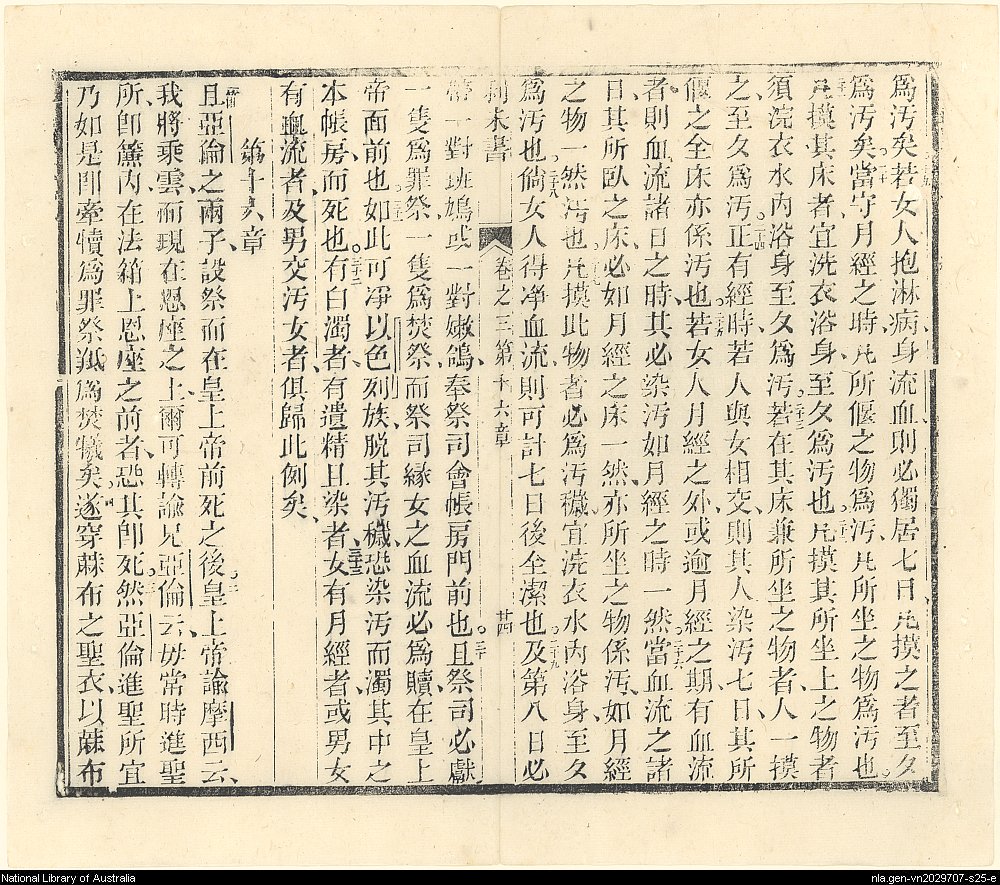 爲汚矣若女人抱淋病身流血則必獨居七日凡摸之者至夕
爲汚矣當守月經之時凡所偃之物爲汚凡所坐之物爲汚也
凡摸其床者宜洗衣浴身至夕爲汚也凡摸其所坐上之物者
須浣衣水內浴身至夕爲汚若在其床兼所坐之物者人一摸
之至夕爲汚正有經時若人與女相交則其人染汚七日其所
偃之全床亦係汚也若女人月經之外或逾月經之期有血流
者則血流諸日之時其必染汚如月經之時一然當血流之諸
日其所臥之床必如月經之床一然亦所坐之物係汚如月經
之物一然汚也凡摸此物者必爲汚穢宜浣衣水內浴身至夕
爲汚也倘女人得净血流則可計七日後全潔也及第八日必
利未書 卷之三第十六章 廿四
帶一對班鳩或一對嫩鴿奉祭司會帳房門前也且祭司必獻
一隻爲罪祭一隻爲焚祭而祭司緣女之血流必爲贖在皇上
帝面前也如此可净以色列族脫其汚穢恐染汚而濁其中之
本帳房而死也有白濁者有遺精且染者女有月經者或男女
有血流者及男交汚女者俱歸此例矣
第十六章
且亞倫之兩子設祭而在皇上帝前死之後皇上帝諭摩西云
我將乘雲而現在恩座之上爾可轉諭兄亞倫云毋常時進聖
所卽簾內在法箱上恩座之前者恐其卽死然亞倫進聖所宜
乃如是卽牽犢爲罪祭羝爲焚犧矣遂穿蔴布之聖衣以蔴布
National Library of Australia
nla.gen-vn2029707-s25-e